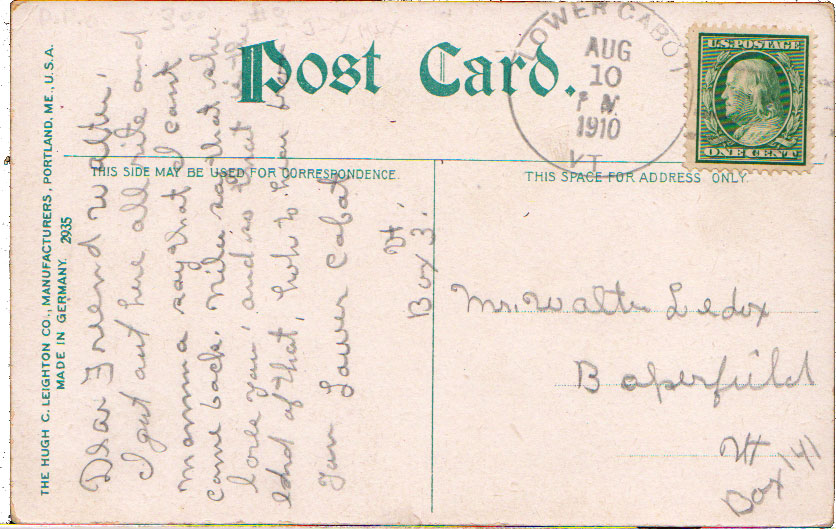 THE HUGH C. LEIGHTON CO., MANUFACTURERS, PORTLAND, ME., U.S.A.
MADE IN GERMANY. 2935
Post Card.
LOWER CABOT
AUG
10
P M
1910
VT.
U.S. POSTAGE
ONE CENT
THIS SIDE MAY BE USED FOR CORRESPONDENCE.
THIS SPACE FOR ADDRESS ONLY.
Dear Friend Walter.
I got out here all rite and
mamma say that I cant
come back. Niles say that she
love you, and so that is the
end of that, hoh to hear from
you Lower Cabat
Vt.
Box 3.
Mr. Walter Ledox
Baperfield
Vt
Box 141